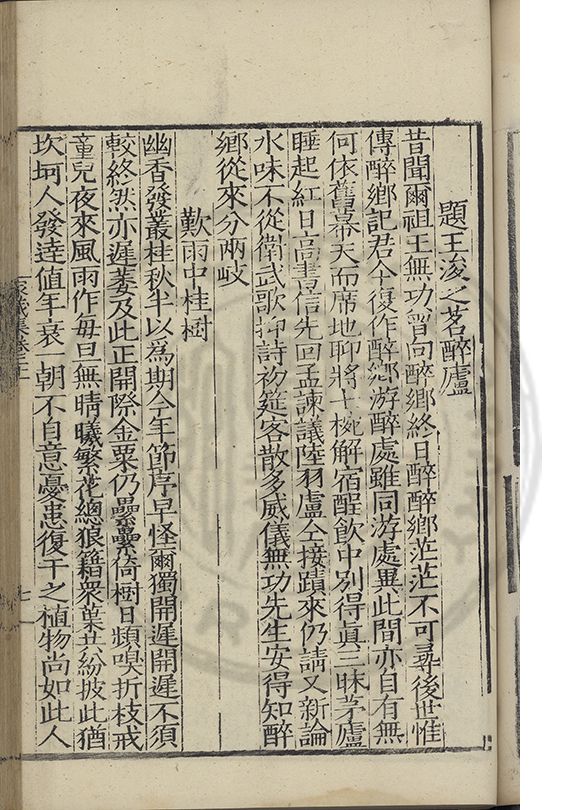 題王浚之茗醉廬
昔聞爾祖王無功曾向醉鄉終日醉醉鄉茫茫不可尋後世惟
傳醉鄉記君今復作醉鄉游醉處雖同游處異此間亦自有無
何依舊幕天而席地聊將七椀解宿酲飲中別得眞三昧茅廬
睡起紅日高書信先回孟諫議陸羽盧仝接蹟來仍請又新論
水味不從衛武歌抑詩初筵客散多威儀無功先生安得知醉
鄉從來分兩岐
歎雨中桂樹
幽香發叢桂秋半以為期今年節序早怪爾獨開遲開遲不須
較終然亦遲萎及此正開際金粟仍纍纍倚樹日頻嗅折枝戒
童兒夜來風雨作每旦無晴曦繁花總狼籍衆葉共紛披此猶
坎坷人發達值年衰一朝不自意憂患復干之植物尚如此人
家藏集卷三
七